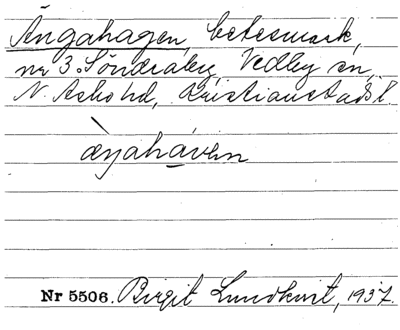 Ängahagen, betesmark,
nr 3 Söndraby, Vedby sn,
N. Åsbo hd, Kristianstads l.
æŋahávën
Nr 5506. Birgit Lundkvist, 1937.